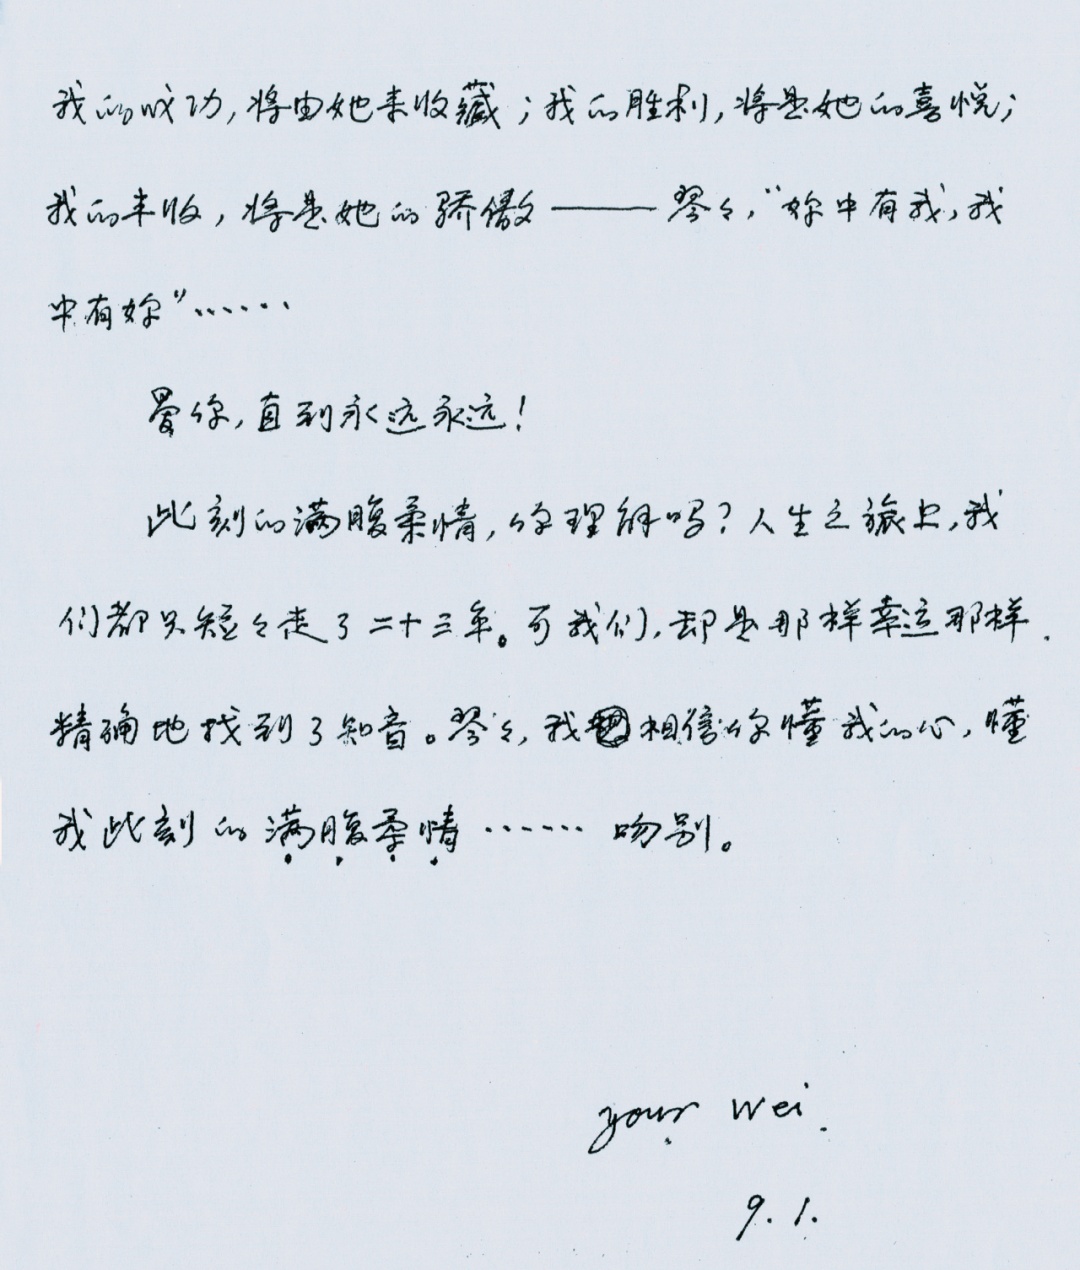 我的成功,将由她来收藏;我的胜利,将是她的喜悦;
我的丰收,将是她的骄傲——琴々,“妳中有我,我
中有妳”……
爱你,直到永远永远!
此刻的满腹柔情,你理解吗?人生之旅上,我
们都只短々走了二十三年。可我们,却是那样幸运那样
精确地找到了知音。琴々,我相信你懂我的心,懂
我此刻的满腹柔情……吻别。
your Wei.
9.1.